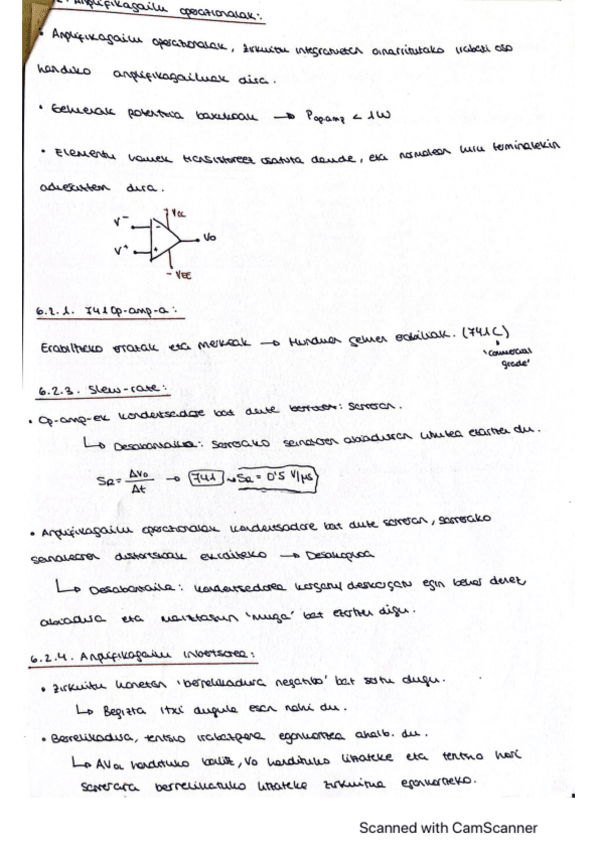 Anplifikagailu operazionalak:
• Anplifikagailu operazionalak, zirkuitu integratuetan oinarritutako irabazi oso
handiko anplifikagailuak dira.
• Gehienak potentzia baxukoak → Popamp < 1W
• Elementu hauek transistoreez osatuta daude, eta normalean hiru terminalekin
adierazten dira.
V⁻
V⁺
- +
Vcc
Vo
-VEE
6.2.1. 741 Op-amp-a:
Erabiltzeko errazak eta merkeak → Munduan gehien erabiliak. (741C)
'comercial
grade'
6.2.3. Slew-rate:
• Op-amp-ek kondentsadore bat dute sarreran.
↳ Desabantaila: sarrerako seinalearen abiadura limitea ezartzen du.
SR = ΔVo/Δt → 741 → SR = 0'5 V/μs
• Anplifikagailu operazionalak kondentsadore bat dute sarreran, sarrerako
seinalearen distortsioak ekiditeko → Desakoploa
↳ Desabantaila: kondentsadorea kargatu/deskargatu egin behar denez
abiadura eta maiztasun 'muga' bat ezartzen digu.
6.2.4. Anplifikagailu inbertsorea:
• Zirkuitu honetan 'berrelikadura negatibo' bat sortu dugu.
↳ Begizta itxi dugula esan nahi du.
• Berrelikadura, tentsio irabazpena egonkortzea ahalb. du.
↳ AVOL handituko balitz, Vo handituko litzateke eta tentsio hori
sarrerara berrelikatuko litzateke zirkuitua egonkortzeko.
Scanned with CamScanner